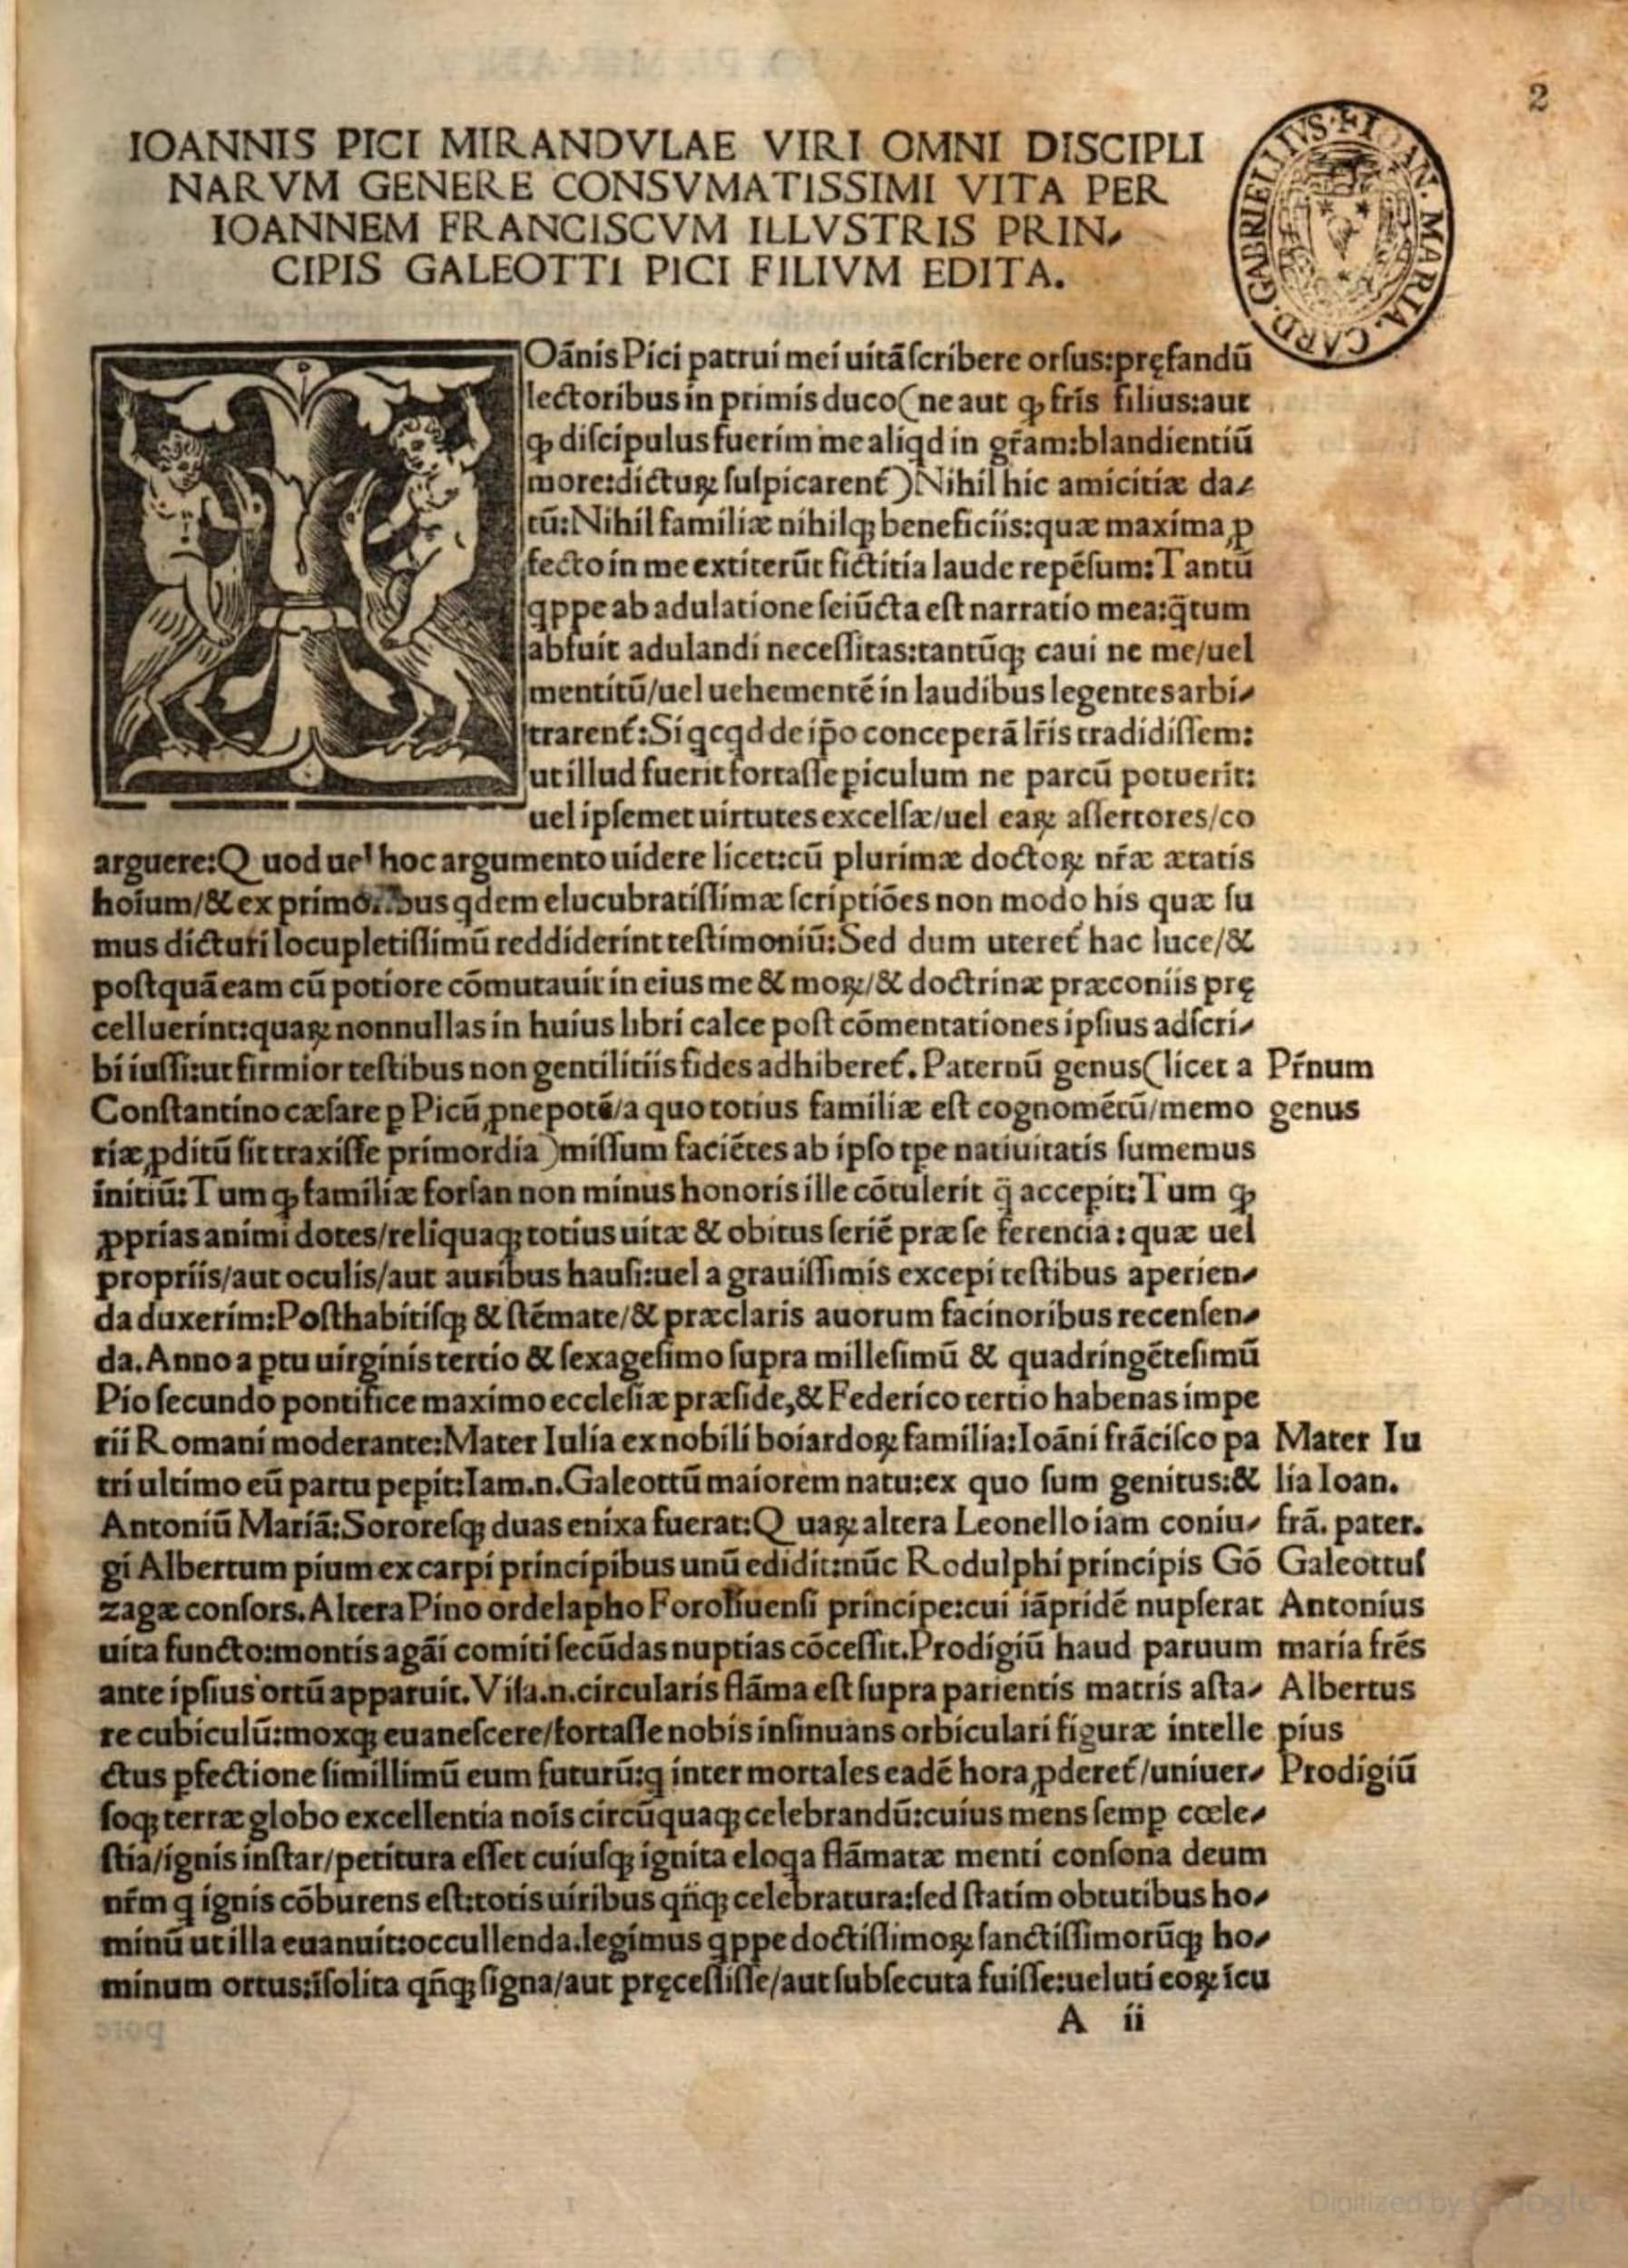 2
IOANNIS PICI MIRANDVLAE VIRI OMNI DISCIPLI
NARVM GENERE CONSVMATISSIMI VITA PER
IOANNEM FRANCISCVM ILLVSTRIS PRIN,
CIPIS GALEOTTI PICI FILIVM EDITA.
CARD. GABRIELLIVS. FI IOAN. MARIA.
Oãnis Pici patrui mei uitã ſcribere orſus: pręfandũ
lectoribus in primis duco (ne aut ꝙ fris̃ filius: aut
ꝙ diſcipulus fuerim me aliqd in gr̃am: blandientiũ
more: dictuꝝ ſuſpicarent̃) Nihil hic amicitiæ da-
tũ: Nihil familiæ nihilqꝫ beneficiis: quæ maxima ꝓ
fecto in me extiterũt fictitia laude repẽſum: Tantũ
qppe ab adulatione ſeiũcta eſt narratio mea: q̃tum
abfuit adulandi neceſſitas: tantũqꝫ caui ne me/uel
mentitũ/uel uehementẽ in laudibus legentes arbi-
trarent̃: Si qcqd de ip̃o conceperã lr̃is tradidiſſem:
ut illud fuerit fortaſſe ꝑiculum ne parcũ potuerit:
uel ipſemet uirtutes excelſæ/uel eaꝝ aſſertores/co
arguere: Quod uel hoc argumento uidere licet: cũ plurimæ doctoꝝ nr̃æ ætatis
hoĩum/& ex primoribus qdem elucubratiſſimæ ſcriptiões non modo his quæ ſu
mus dicturi locupletiſſimũ reddiderint teſtimoniũ: Sed dum uteret̃ hac luce/&
poſtquã eam cũ potiore cõmutauit in eius me & moꝝ/& doctrinæ præconiis prę
celluerint: quaꝝ nonnullas in huius libri calce poſt cõmentationes ipſius adſcri-
bi iuſſi: ut firmior teſtibus non gentilitiis fides adhiberet̃. Paternũ genus (licet a
Pr̃num
Conſtantino cæſare ꝑ Picũ ꝓnepotẽ/a quo totius familiæ eſt cognomẽtũ/memo
genus
riæ ꝓditũ ſit traxiſſe primordia) miſſum faciẽtes ab ipſo tꝑe natiuitatis ſumemus
initiũ: Tum ꝙ familiæ forſan non minus honoris ille cõtulerit q̃ accepit: Tum ꝙ
ꝓprias animi dotes/reliquaqꝫ totius uitæ & obitus ſeriẽ præ ſe ferencia: quæ uel
propriis/aut oculis/aut auribus hauſi: uel a grauiſſimis excepi teſtibus aperien-
da duxerim: Poſthabitiſqꝫ & ſtẽmate/& præclaris auorum facinoribus recenſen-
da. Anno a ꝑtu uirginis tertio & ſexageſimo ſupra milleſimũ & quadringẽteſimũ
Pio ſecundo pontifice maximo eccleſiæ præſide, & Federico tertio habenas impe
rii Romani moderante: Mater Iulia ex nobili boiardoꝝ familia: Ioãni frãciſco pa
Mater Iu
tri ultimo eũ partu peꝑit: Iam.n. Galeottũ maiorem natu: ex quo ſum genitus: &
lia Ioan.
Antoniũ Mariã: Sororeſqꝫ duas enixa fuerat: Quaꝝ altera Leonello iam coniu-
frã. pater.
gi Albertum pium ex carpi principibus unũ edidit: nũc Rodulphi principis Gõ
Galeottuſ
zagæ conſors. Altera Pino ordelapho Foroliuenſi principe: cui iãpridẽ nupſerat
Antonius
uita functo: montis agãi comiti ſecũdas nuptias cõceſſit. Prodigiũ haud paruum
maria frẽs
ante ipſius ortũ apparuit. Viſa.n. circularis flãma eſt ſupra parientis matris aſta-
Albertus
re cubiculũ: moxqꝫ euaneſcere/fortaſſe nobis inſinuans orbiculari figuræ intelle
pius
ctus ꝑfectione ſimillimũ eum futurũ: q inter mortales eadẽ hora ꝓderet̃/uniuer-
Prodigiũ
ſoqꝫ terræ globo excellentia noĩs circũquaqꝫ celebrandũ: cuius mens ſemꝑ cœle-
ſtia/ignis inſtar/petitura eſſet cuiuſqꝫ ignita eloqa flãmatæ menti conſona deum
nr̃m q ignis cõburens eſt: totis uiribus qñqꝫ celebratura: ſed ſtatim obtutibus ho-
minũ ut illa euanuit: occullenda. legimus qppe doctiſſimoꝝ ſanctiſſimorũqꝫ ho-
minum ortus: ĩſolita qñqꝫ ſigna/aut pręceſſiſſe/aut ſubſecuta fuiſſe: ueluti eoꝝ ĩcu
A ii
Digitized by Google